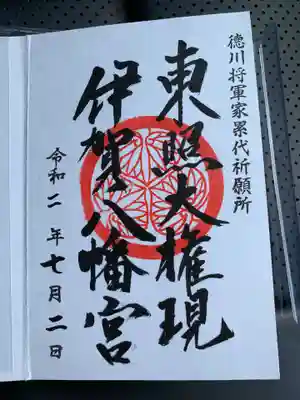 徳川将軍家累代祈願所
東照大権現
伊賀八幡宮
令和二年七月二日